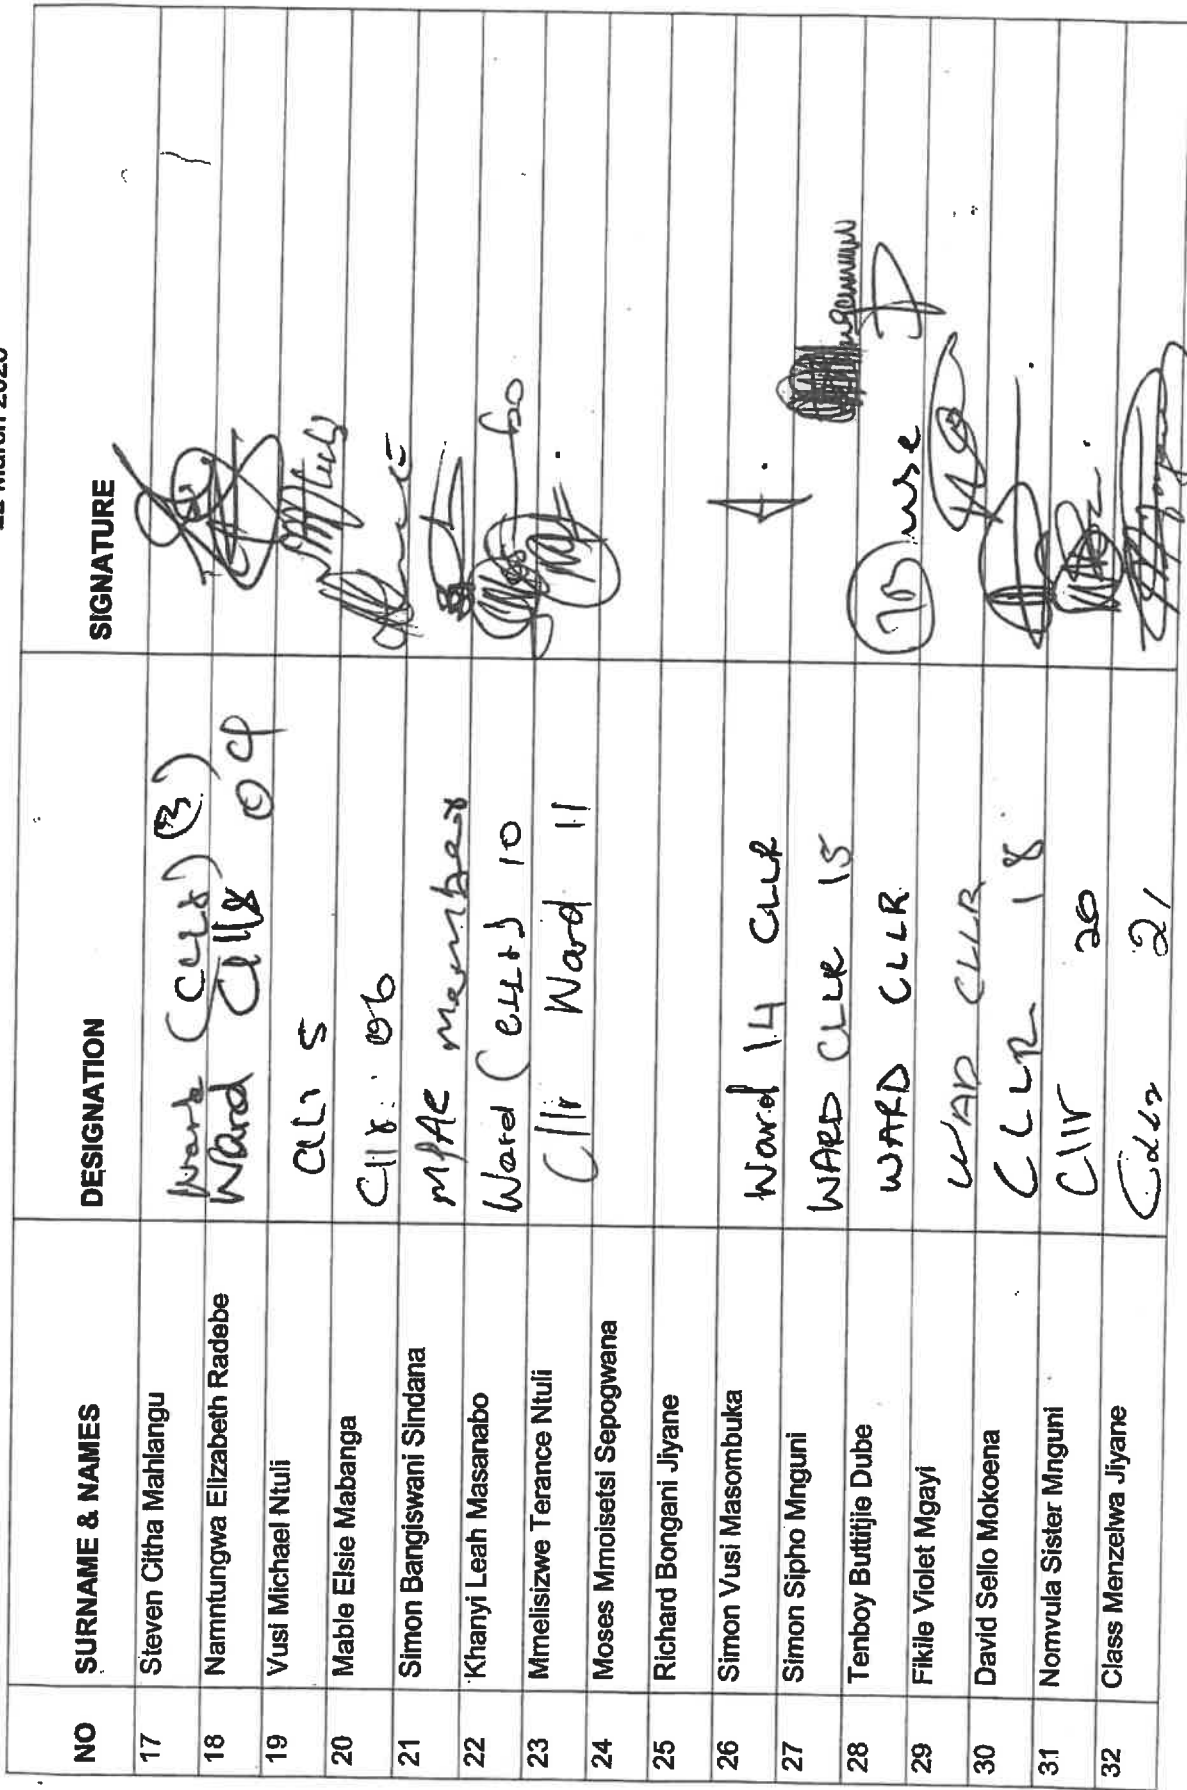 NO SURNAME & NAMES DESIGNATION SIGNATURE
17 Steven Citha Mahlangu Ward (Cllr) (3)
18 Namntungwa Elizabeth Radebe Ward Cllr 04
19 Vusi Michael Ntuli 5
20 Mable Elsie Mabanga Cllr. 06
21 Simon Bangiswani Sindana MPAC member
22 Khanyi Leah Masanabo Ward 10
23 Mmelisizwe Terance Ntuli Cllr Ward 11
24 Moses Mmoisetsi Sepogwana
25 Richard Bongani Jiyane
26 Simon Vusi Masombuka Ward 14 CLLR
27 Simon Sipho Mnguni WARD CLLR 15
28 Tenboy Buttitjie Dube WARD CLLR
29 Fikile Violet Mgayi WAD CLLR
30 David Sello Mokoena CLLR 18
31 Nomvula Sister Mnguni Cllr 20
32 Class Menzelwa Jiyane 21